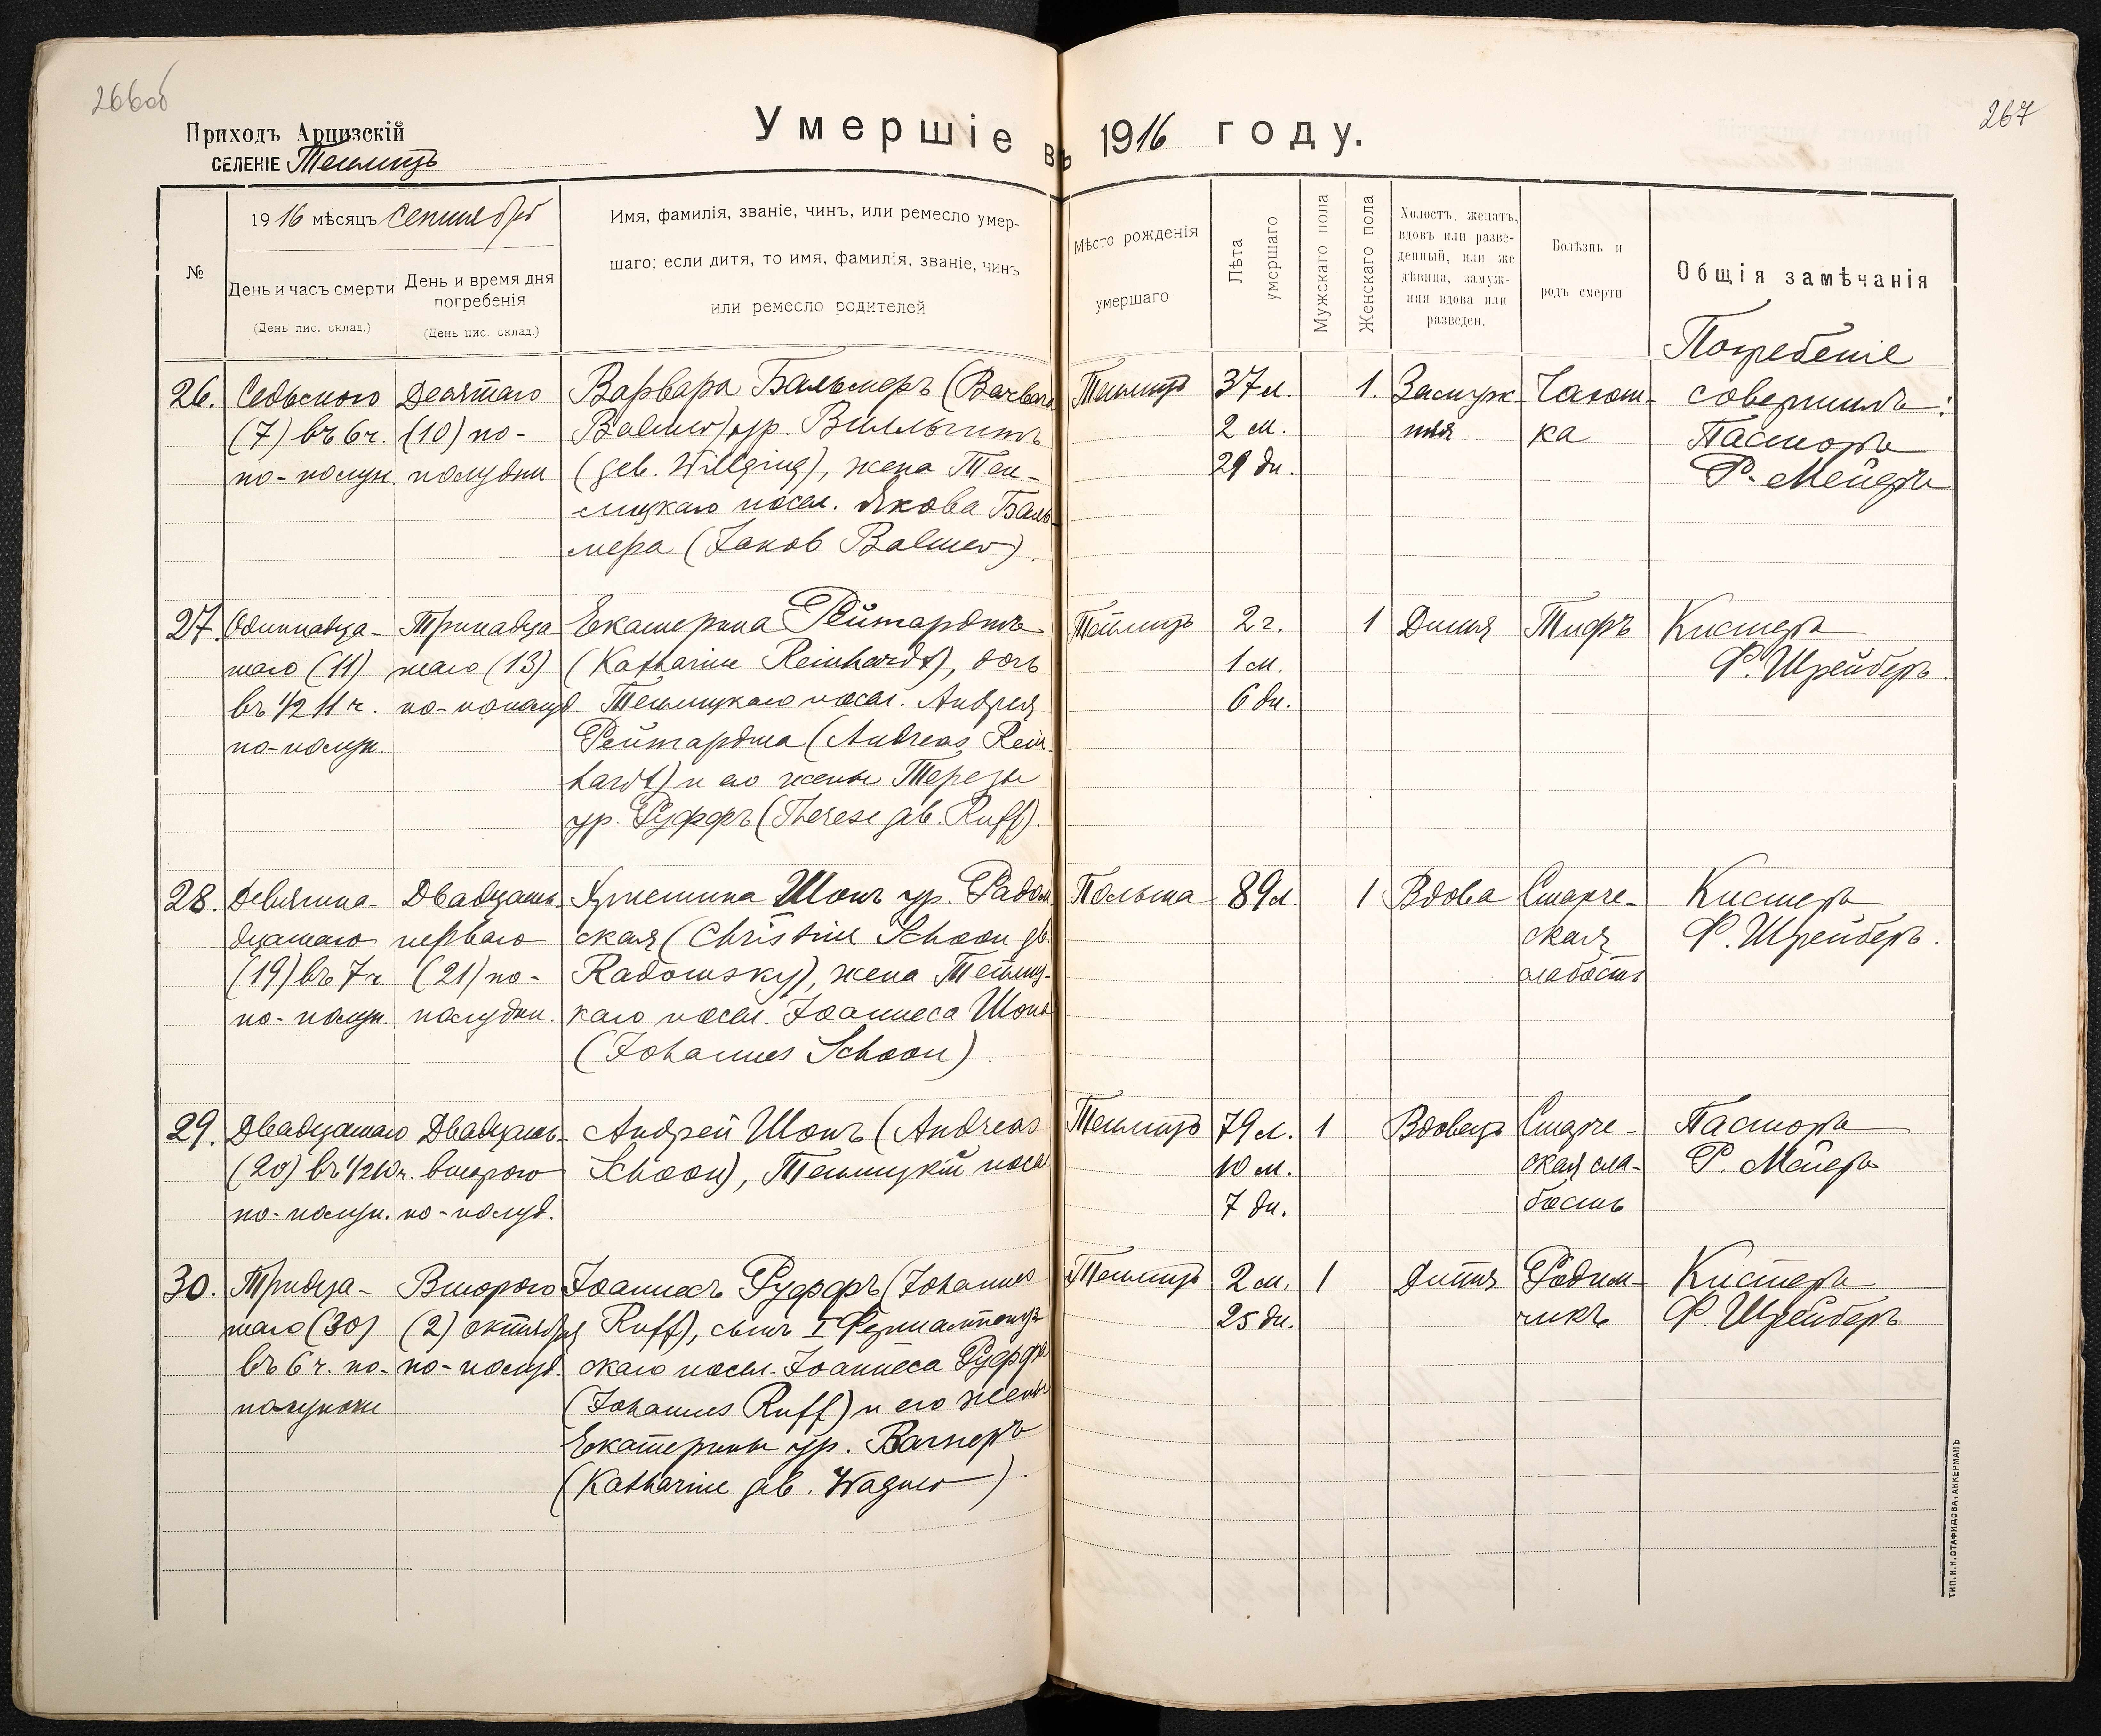 266об
267
Приходъ Арцизскій
СЕЛЕНІЕ Теплицъ
Умершіе въ 1916 году.
№
1916 мѣсяцъ Сентябрь
День и часъ смерти
(День пис. склад.)
День и время дня
погребенія
(День пис. склад.)
Имя, фамилія, званіе, чинъ, или ремесло умер-
шаго; если дитя, то имя, фамилія, званіе, чинъ
или ремесло родителей
Мѣсто рожденія
умершаго
Лѣта
умершаго
Мужскаго пола
Женскаго пола
Холостъ, женатъ,
вдовъ или разве-
денный, или же
дѣвица, замуж-
няя вдова или
разведен.
Болѣзнь и
родъ смерти
Общія замѣчанія
Погребеніе
совершилъ:
26.
Седьмого
(7) въ 6 ч.
по-полун.
Десятаго
(10) по-
полудни
Варвара Бальмеръ (Barbara
Balmer) ур. Вилльгингъ
(geb. Willging), жена Теп-
лицкаго посел. Якова Баль-
мера (Jakob Balmer).
Теплицъ
37 л.
2 м.
29 дн.
1.
Замуж-
няя
Чахот-
ка
Пасторъ
Р. Мейеръ
27.
Одиннадца-
таго (11)
въ 1/2 11 ч.
по-полун.
Тринадца-
таго (13)
по-полуд.
Екатерина Рейнгардтъ
(Katharine Reinhardt), дочь
Теплицкаго посел. Андрея
Рейнгардта (Andreas Rein-
hardt) и его жены Терезы
ур. Руффъ (Therese geb. Ruff).
Теплицъ
2 г.
1 м.
6 дн.
1
Дитя
Тифъ
Кистеръ
Ф. Шрейберъ.
28.
Девятна-
дцатаго
(19) въ 7 ч.
по-полун.
Двадцать-
перваго
(21) по-
полудни.
Христина Шонъ ур. Радом-
ская (Christine Schoon geb.
Radomsky), жена Теплиц-
каго посел. Іоаннеса Шона
(Johannes Schoon).
Польша
89 л.
1
Вдова
Старче-
ская
слабость
Кистеръ
Ф. Шрейберъ.
29.
Двадцатаго
(20) въ 1/2 10 ч.
по-полун.
Двадцать-
второго
по-полуд.
Андрей Шонъ (Andreas
Schoon), Теплицкій посел.
Теплицъ
79 л.
10 м.
7 дн.
1
Вдовецъ
Старче-
ская сла-
бость
Пасторъ
Р. Мейеръ
30.
Тридца-
таго (30)
въ 6 ч. по-
полуночи
Второго
(2) октября
по-полуд.
Іоаннесъ Руффъ (Johannes
Ruff), сынъ I Фершампенуаз-
скаго посел. Іоаннеса Руффа
(Johannes Ruff) и его жены
Екатерины ур. Вагнеръ
(Katharine geb. Wagner).
Теплицъ
2 м.
25 дн.
1
Дитя
Родим-
чикъ
Кистеръ
Ф. Шрейберъ
ТИП. И. Н. СТАФИДОВА, АККЕРМАНЪ